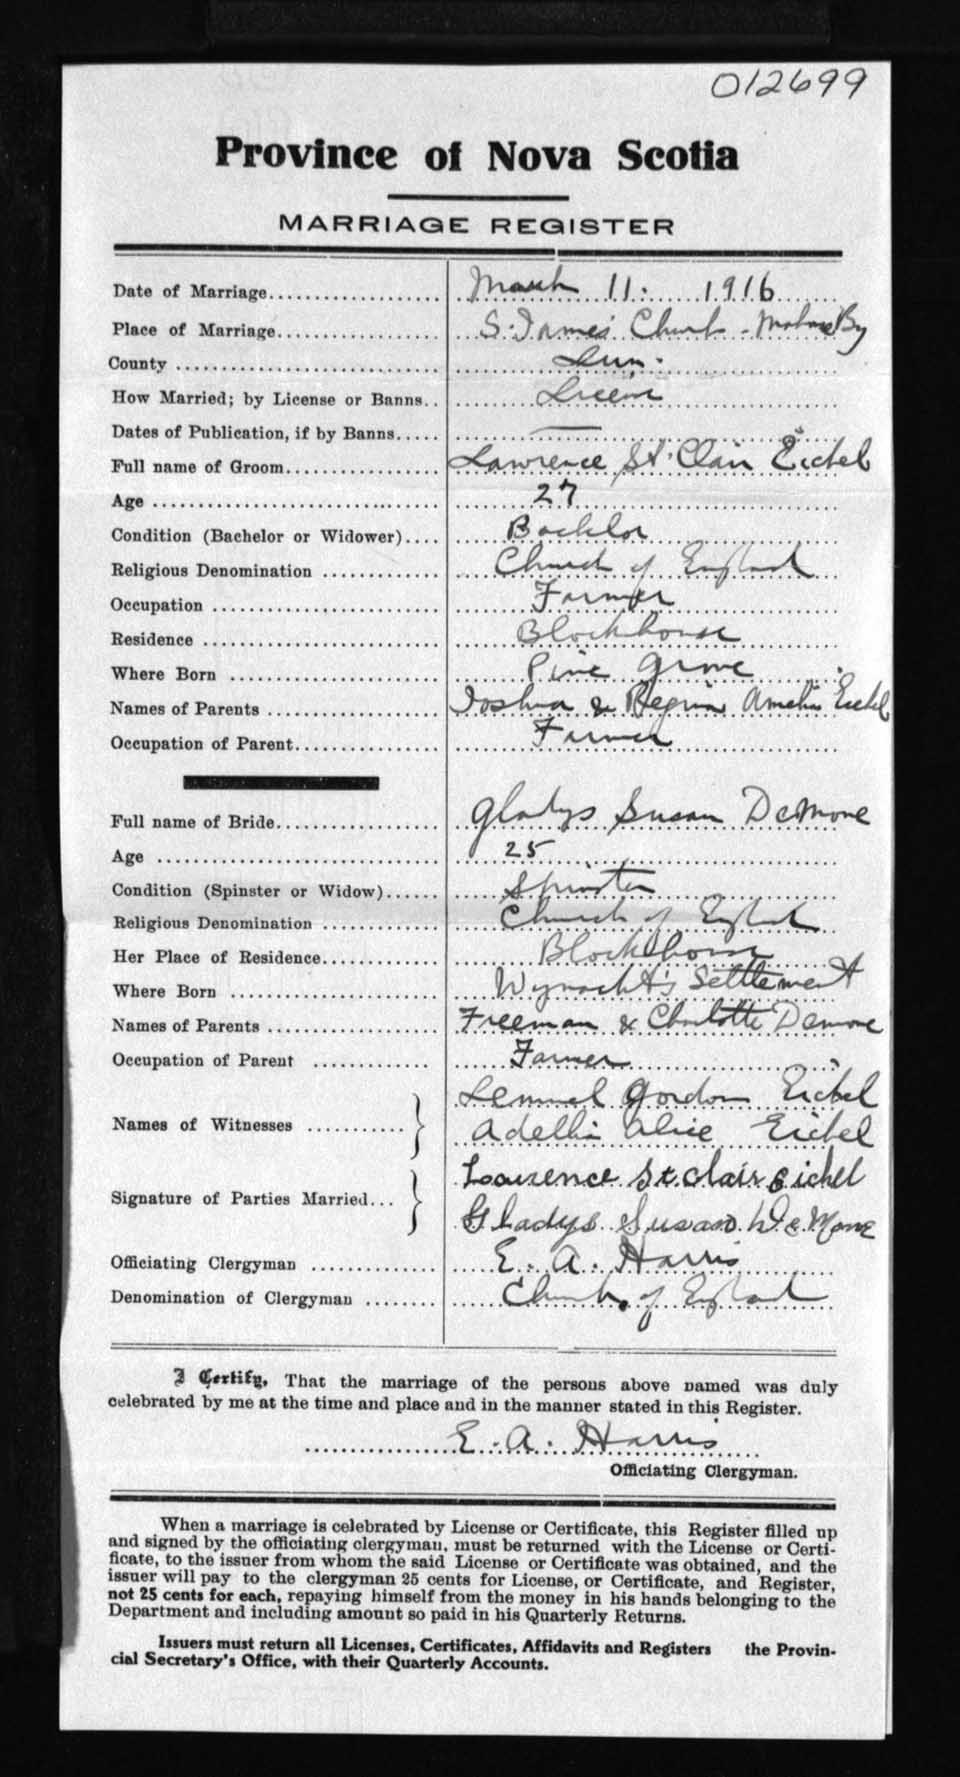 012699
Province of Nova Scotia
MARRIAGE REGISTER
Date of Marriage.................... March 11. 1916
Place of Marriage.................. S. James' Church - Mahone By
County ............................. Lun.
How Married; by License or Banns.. License
Dates of Publication, if by Banns..... —
Full name of Groom.................. Lawrence St. Clair Eichel
Age ................................ 27
Condition (Bachelor or Widower).... Bachelor
Religious Denomination ............. Church of England
Occupation ......................... Farmer
Residence .......................... Blockhouse
Where Born ....................... Pine Grove
Names of Parents ................... Joshua & Regina Amelia Eichel
Occupation of Parent................ Farmer
Full name of Bride.................. Gladys Susan DeMone
Age ............................... 25
Condition (Spinster or Widow)...... Spinster
Religious Denomination ............. Church of England
Her Place of Residence............. Blockhouse
Where Born ....................... Wynacht's Settlement
Names of Parents ................... Freeman & Charlotte Demone
Occupation of Parent .............. Farmer
Names of Witnesses ........... } Lemuel Gordon Eichel
Adellia Alice Eichel
Signature of Parties Married... } Lawrence St. Clair Eichel
Gladys Susan De Mone
Officiating Clergyman .............. E. A. Harris
Denomination of Clergyman ........ Church of England
I Certify, That the marriage of the persons above named was duly
celebrated by me at the time and place and in the manner stated in this Register.
E. A. Harris
Officiating Clergyman.
When a marriage is celebrated by License or Certificate, this Register filled up
and signed by the officiating clergyman, must be returned with the License or Certi-
ficate, to the issuer from whom the said License or Certificate was obtained, and the
issuer will pay to the clergyman 25 cents for License, or Certificate, and Register,
not 25 cents for each, repaying himself from the money in his hands belonging to the
Department and including amount so paid in his Quarterly Returns.
Issuers must return all Licenses, Certificates, Affidavits and Registers the Provin-
cial Secretary's Office, with their Quarterly Accounts.